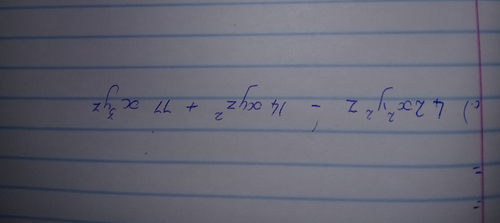 c.) 42x²y²z - 14xyz² + 77x³yz
=
=